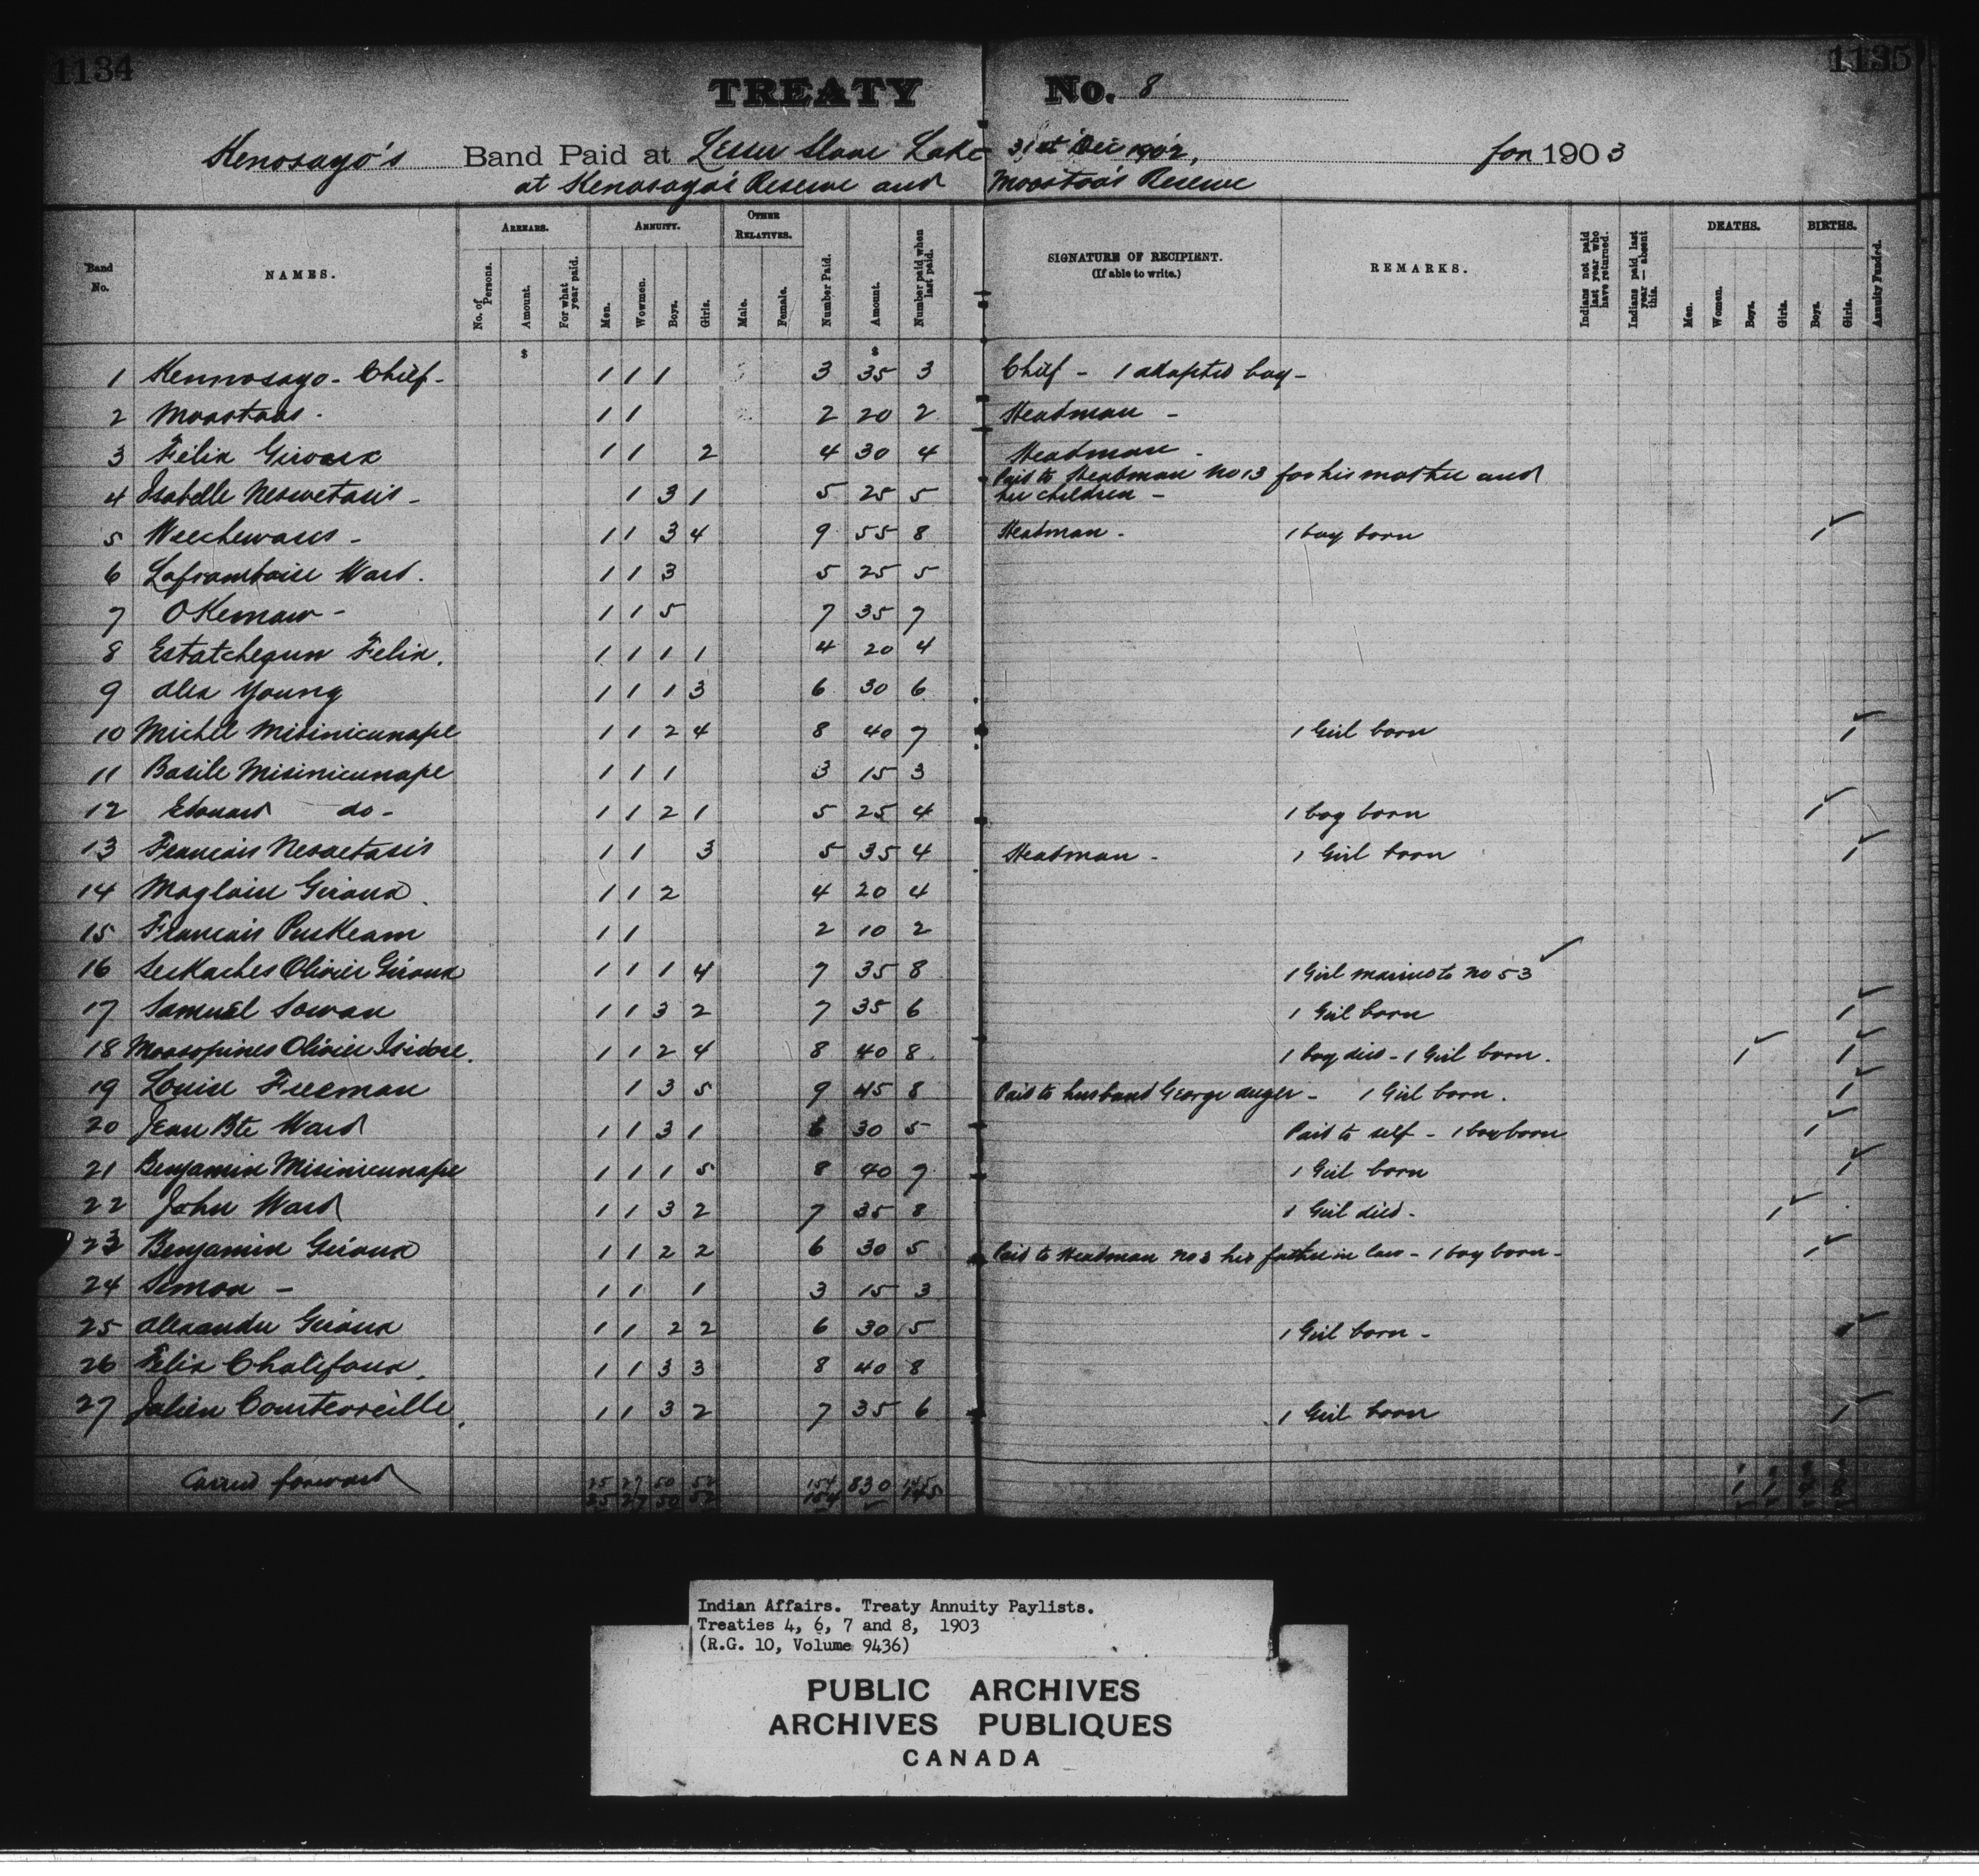 1134
1135
TREATY No. 8
Kenosayo's Band Paid at Lesser Slave Lake 31st Dec 1902, for 1903
at Kenosayo's Reserve and Moostoos Reserve
Band No. NAMES. ARREARS. No. of Persons. Amount. For what year paid. ANNUITY. Men. Wowmen. Boys. Girls. OTHER RELATIVES. Male. Female. Number Paid. Amount. Number paid when last paid. SIGNATURE OF RECIPIENT. (If able to write.) REMARKS. Indians not paid last year who have returned. Indians paid last year — absent this. DEATHS. Men. Women. Boys. Girls. BIRTHS. Boys. Girls. Annuity Funded.
$ $
1 Kennosayo - Chief - 1 1 1 3 35 3 Chief - 1 adopted boy -
2 Moostoos - 1 1 2 20 2 Headman -
3 Felix Giroux 1 1 2 4 30 4 Headman -
4 Isabelle Neswetasis - 1 3 1 5 25 5 Paid to Headman No 13 for his mother and her children -
5 Weechewasis - 1 1 3 4 9 55 8 Headman - 1 boy born 1
6 Laframboise Ward. 1 1 3 5 25 5
7 OKemaw - 1 1 5 7 35 7
8 Estatchegun Felix. 1 1 1 1 4 20 4
9 Alex Young 1 1 1 3 6 30 6
10 Michel Misinicunape 1 1 2 4 8 40 7 1 Girl born 1
11 Basile Misinicunape 1 1 1 3 15 3
12 Edouard do - 1 1 2 1 5 25 4 1 boy born 1
13 Francois Neswetasis 1 1 3 5 35 4 Headman - 1 Girl born 1
14 Magloire Giroux. 1 1 2 4 20 4
15 Francois PusKeam 1 1 2 10 2
16 SesKaches Olivier Giroux 1 1 1 4 7 35 8 1 Girl married to No 53
17 Samuel Sowan 1 1 3 2 7 35 6 1 Girl born 1
18 Moosopines Olivier Isidore. 1 1 2 4 8 40 8 1 boy died - 1 Girl born. 1 1
19 Louise Freeman 1 3 5 9 45 8 Paid to husband George Auger - 1 Girl born. 1
20 Jean Bte Ward 1 1 3 1 6 30 5 Paid to self - 1 boy born 1
21 Benjamin Misinicunape 1 1 1 5 8 40 7 1 Girl born 1
22 John Ward 1 1 3 2 7 35 8 1 Girl died - 1
23 Benjamin Giroux 1 1 2 2 6 30 5 Paid to Headman No 3 his father in law - 1 boy born - 1
24 Simon - 1 1 1 3 15 3
25 Alexandre Giroux 1 1 2 2 6 30 5 1 Girl born -
26 Felix Chalifoux. 1 1 3 3 8 40 8
27 Julien Courtoreille. 1 1 3 2 7 35 6 1 Girl born 1
Carried forward 25 27 50 52 154 830 145
25 27 50 52 154 145 1 1 4 8
Indian Affairs. Treaty Annuity Paylists.
Treaties 4, 6, 7 and 8, 1903
(R.G. 10, Volume 9436)
PUBLIC ARCHIVES
ARCHIVES PUBLIQUES
CANADA